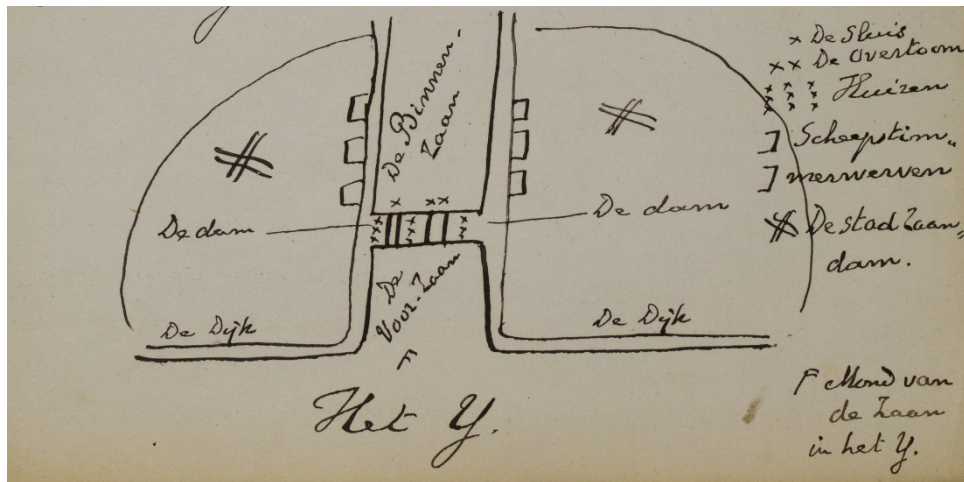 De Binnen-
Zaan
De dam
De dam
De
Voor-Zaan
De Dijk
De Dijk
Het Y.
× De Sluis
×× De Overtoom
Huizen
Scheepstim„
merwerven
De stad Zaan„
dam.
Mond van
de Zaan
in het Y.